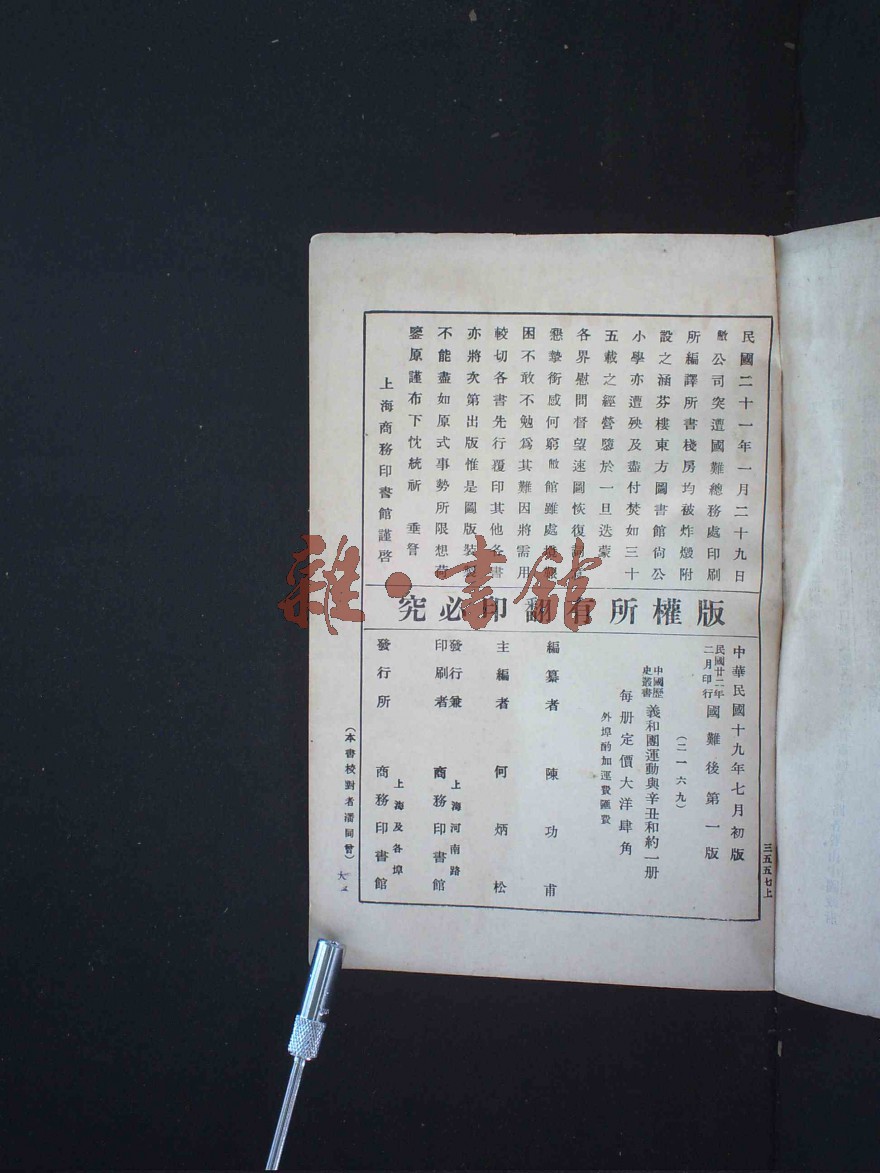 民國二十一年一月二十九日
敝公司突遭國難總務處印刷
所編譯所書棧房均被炸燬附
設之涵芬樓東方圖書館尙公
小學亦遭殃及盡付焚如三十
五載之經營隳於一旦迭蒙
各界慰問督望速圖恢復詞意
懇摯銜感何窮敝館雖處境艱
困不敢不勉爲其難因將需用
較切各書先行覆印其他各書
亦將次第出版惟是圖版裝製
不能盡如原式事勢所限想荷
鑒原謹布下忱統祈 垂詧
上海商務印書館謹啓
版權所有翻印必究
三五五七上
中華民國十九年七月初版
民國廿二年二月印行 國難後第一版
(二一六九)
中國歷史叢書 義和團運動與辛丑和約一册
每册定價大洋肆角
外埠酌加運費匯費
編纂者 陳功甫
主編者 何炳松
發行兼印刷者 上海河南路 商務印書館
發行所 上海及各埠 商務印書館
(本書校對者潘同曾)
雜·書館